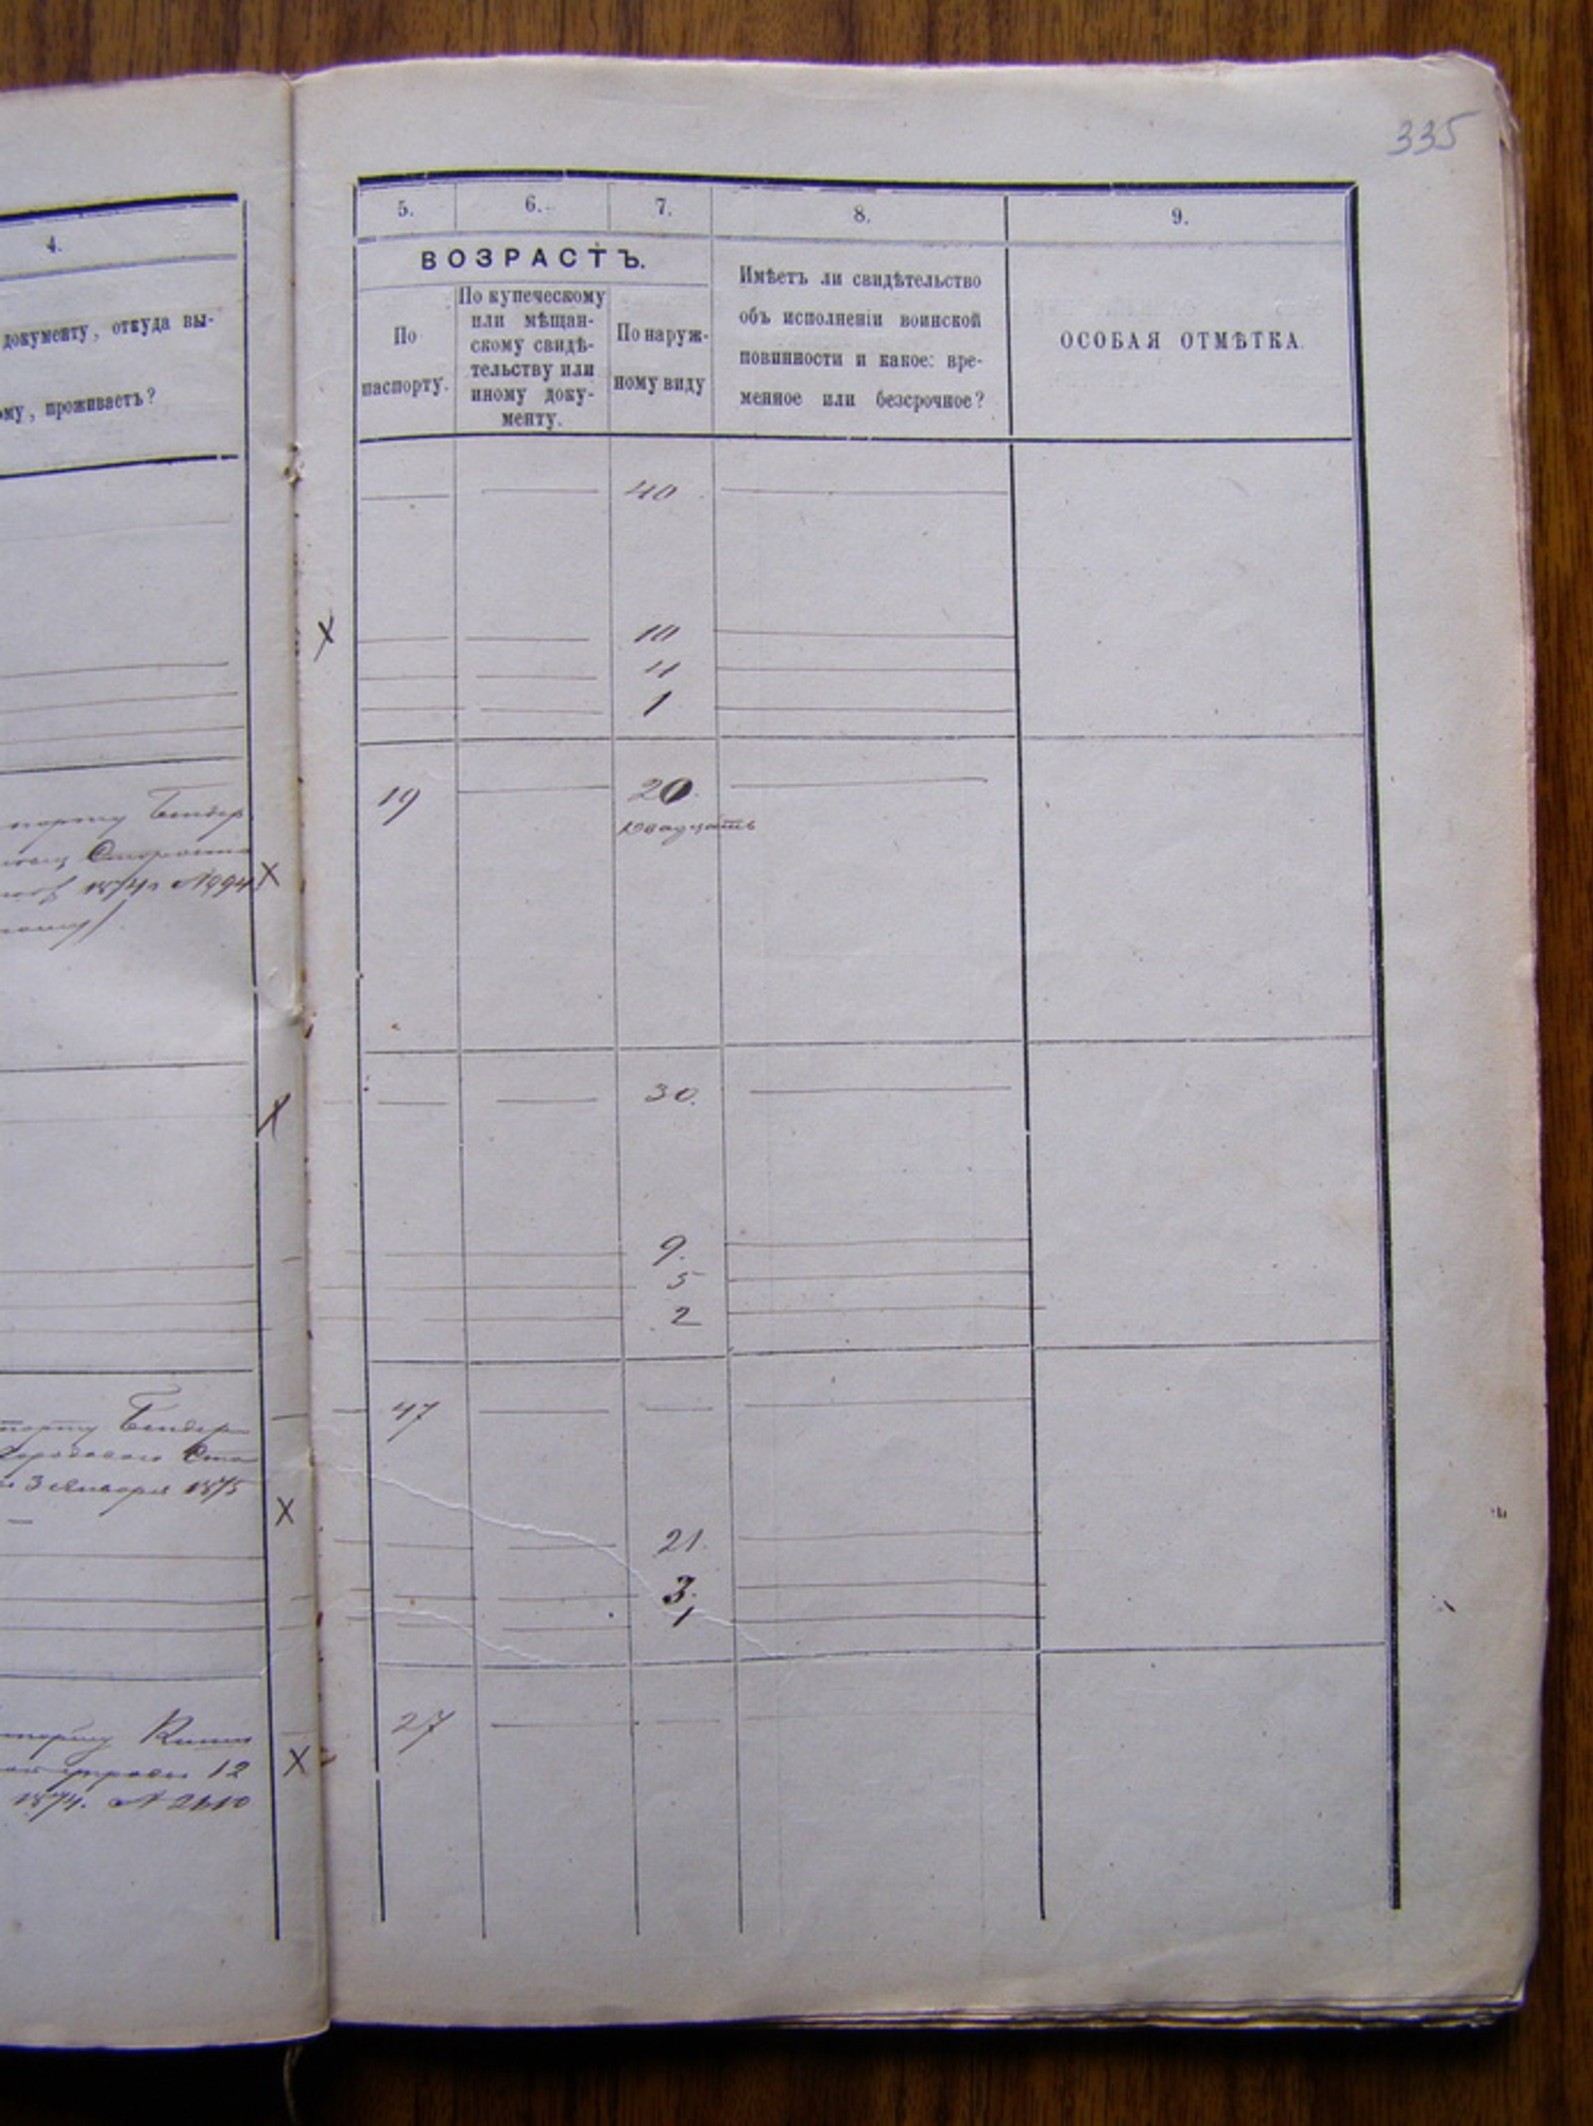 335
4.
документу, откуда вы-
ому, проживаетъ?
5.
6.
7.
8.
9.
ВОЗРАСТЪ.
По
паспорту.
По купеческому
или мѣщан-
скому свидѣ-
тельству или
иному доку-
менту.
По наруж-
ному виду
Имѣетъ ли свидѣтельство
объ исполненіи воинской
повинности и какое: вре-
менное или безсрочное?
ОСОБАЯ ОТМѢТКА.
40
10
4
1
порту Бендер
Старости
1874 №994
19
20
двадцать
30.
9.
5
2
порту Бендер
Городового Ста
3 Января 1875
47
21.
3.
1
порту Киши
управы 12
1874. № 2610
27